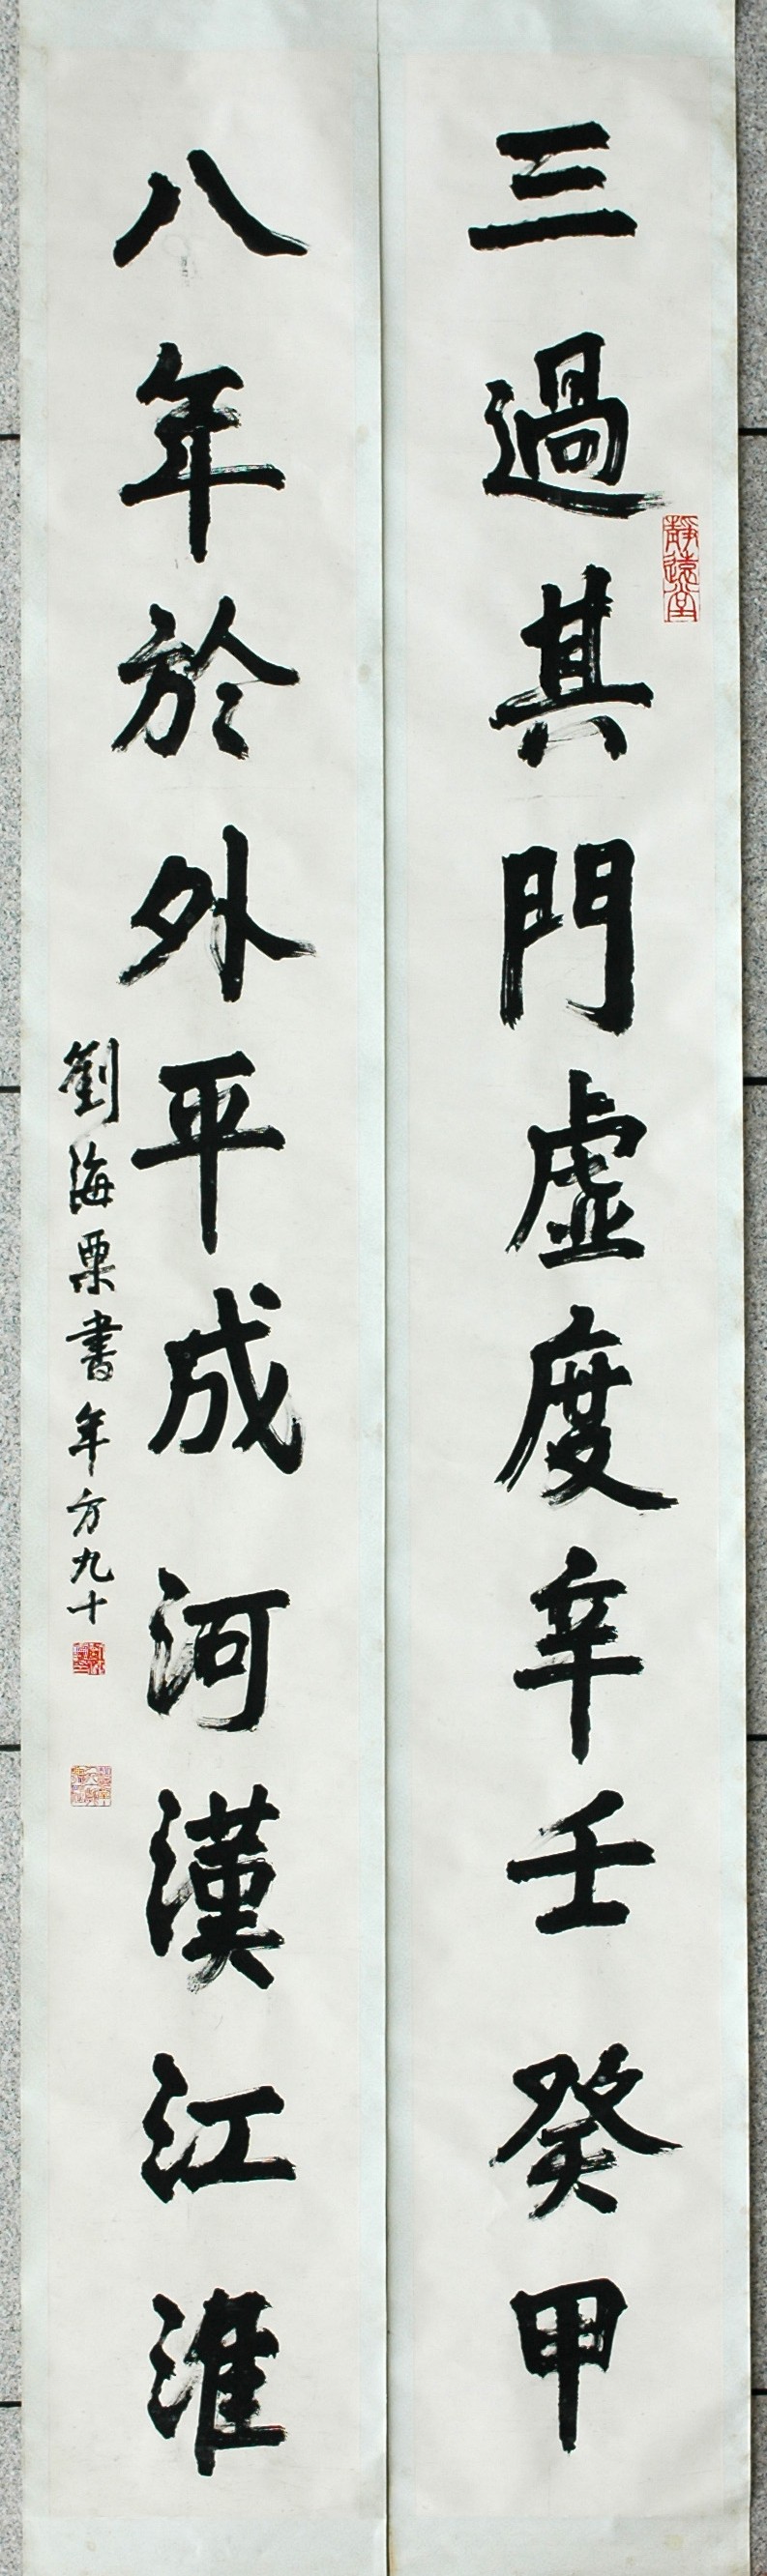 三過其門虛度辛壬癸甲
靜遠堂
八年於外平成河漢江淮
劉海粟書年方九十